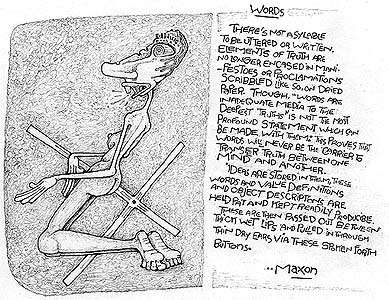 WORDS
THERE'S NOT A SYLABLE
TO BE UTTERED OR WRITTEN.
ELEMENTS OF TRUTH ARE
NO LONGER ENCASED IN MANI-
FESTOES OR PROCLAMATIONS
SCRIBBLED LIKE SO, ON DRIED
PAPER. THOUGH, "WORDS ARE
INADEQUATE MEDIA TO THE
DEEPEST TRUTHS" IS NOT THE MOST
PROFOUND STATEMENT WHICH CAN
BE MADE, WITH THEM: THIS PROVES THAT
WORDS WILL NEVER BE THE CARRIER TO
TRANSFER TRUTH BETWEEN ONE
MIND AND ANOTHER.
IDEAS ARE STORED IN THEM, THESE
WORDS AND VALUE DEFINITIONS
AND OBJECT DESCRIPTIONS ARE
HELD PAT AND KEPT READILY PRODUCIBLE.
THESE ARE THEN PASSED OUT BETWEEN
THICK WET LIPS AND PULLED IN THROUGH
THIN DRY EARS VIA THESE SPOKEN FORTH
BUTTONS.
MAXON